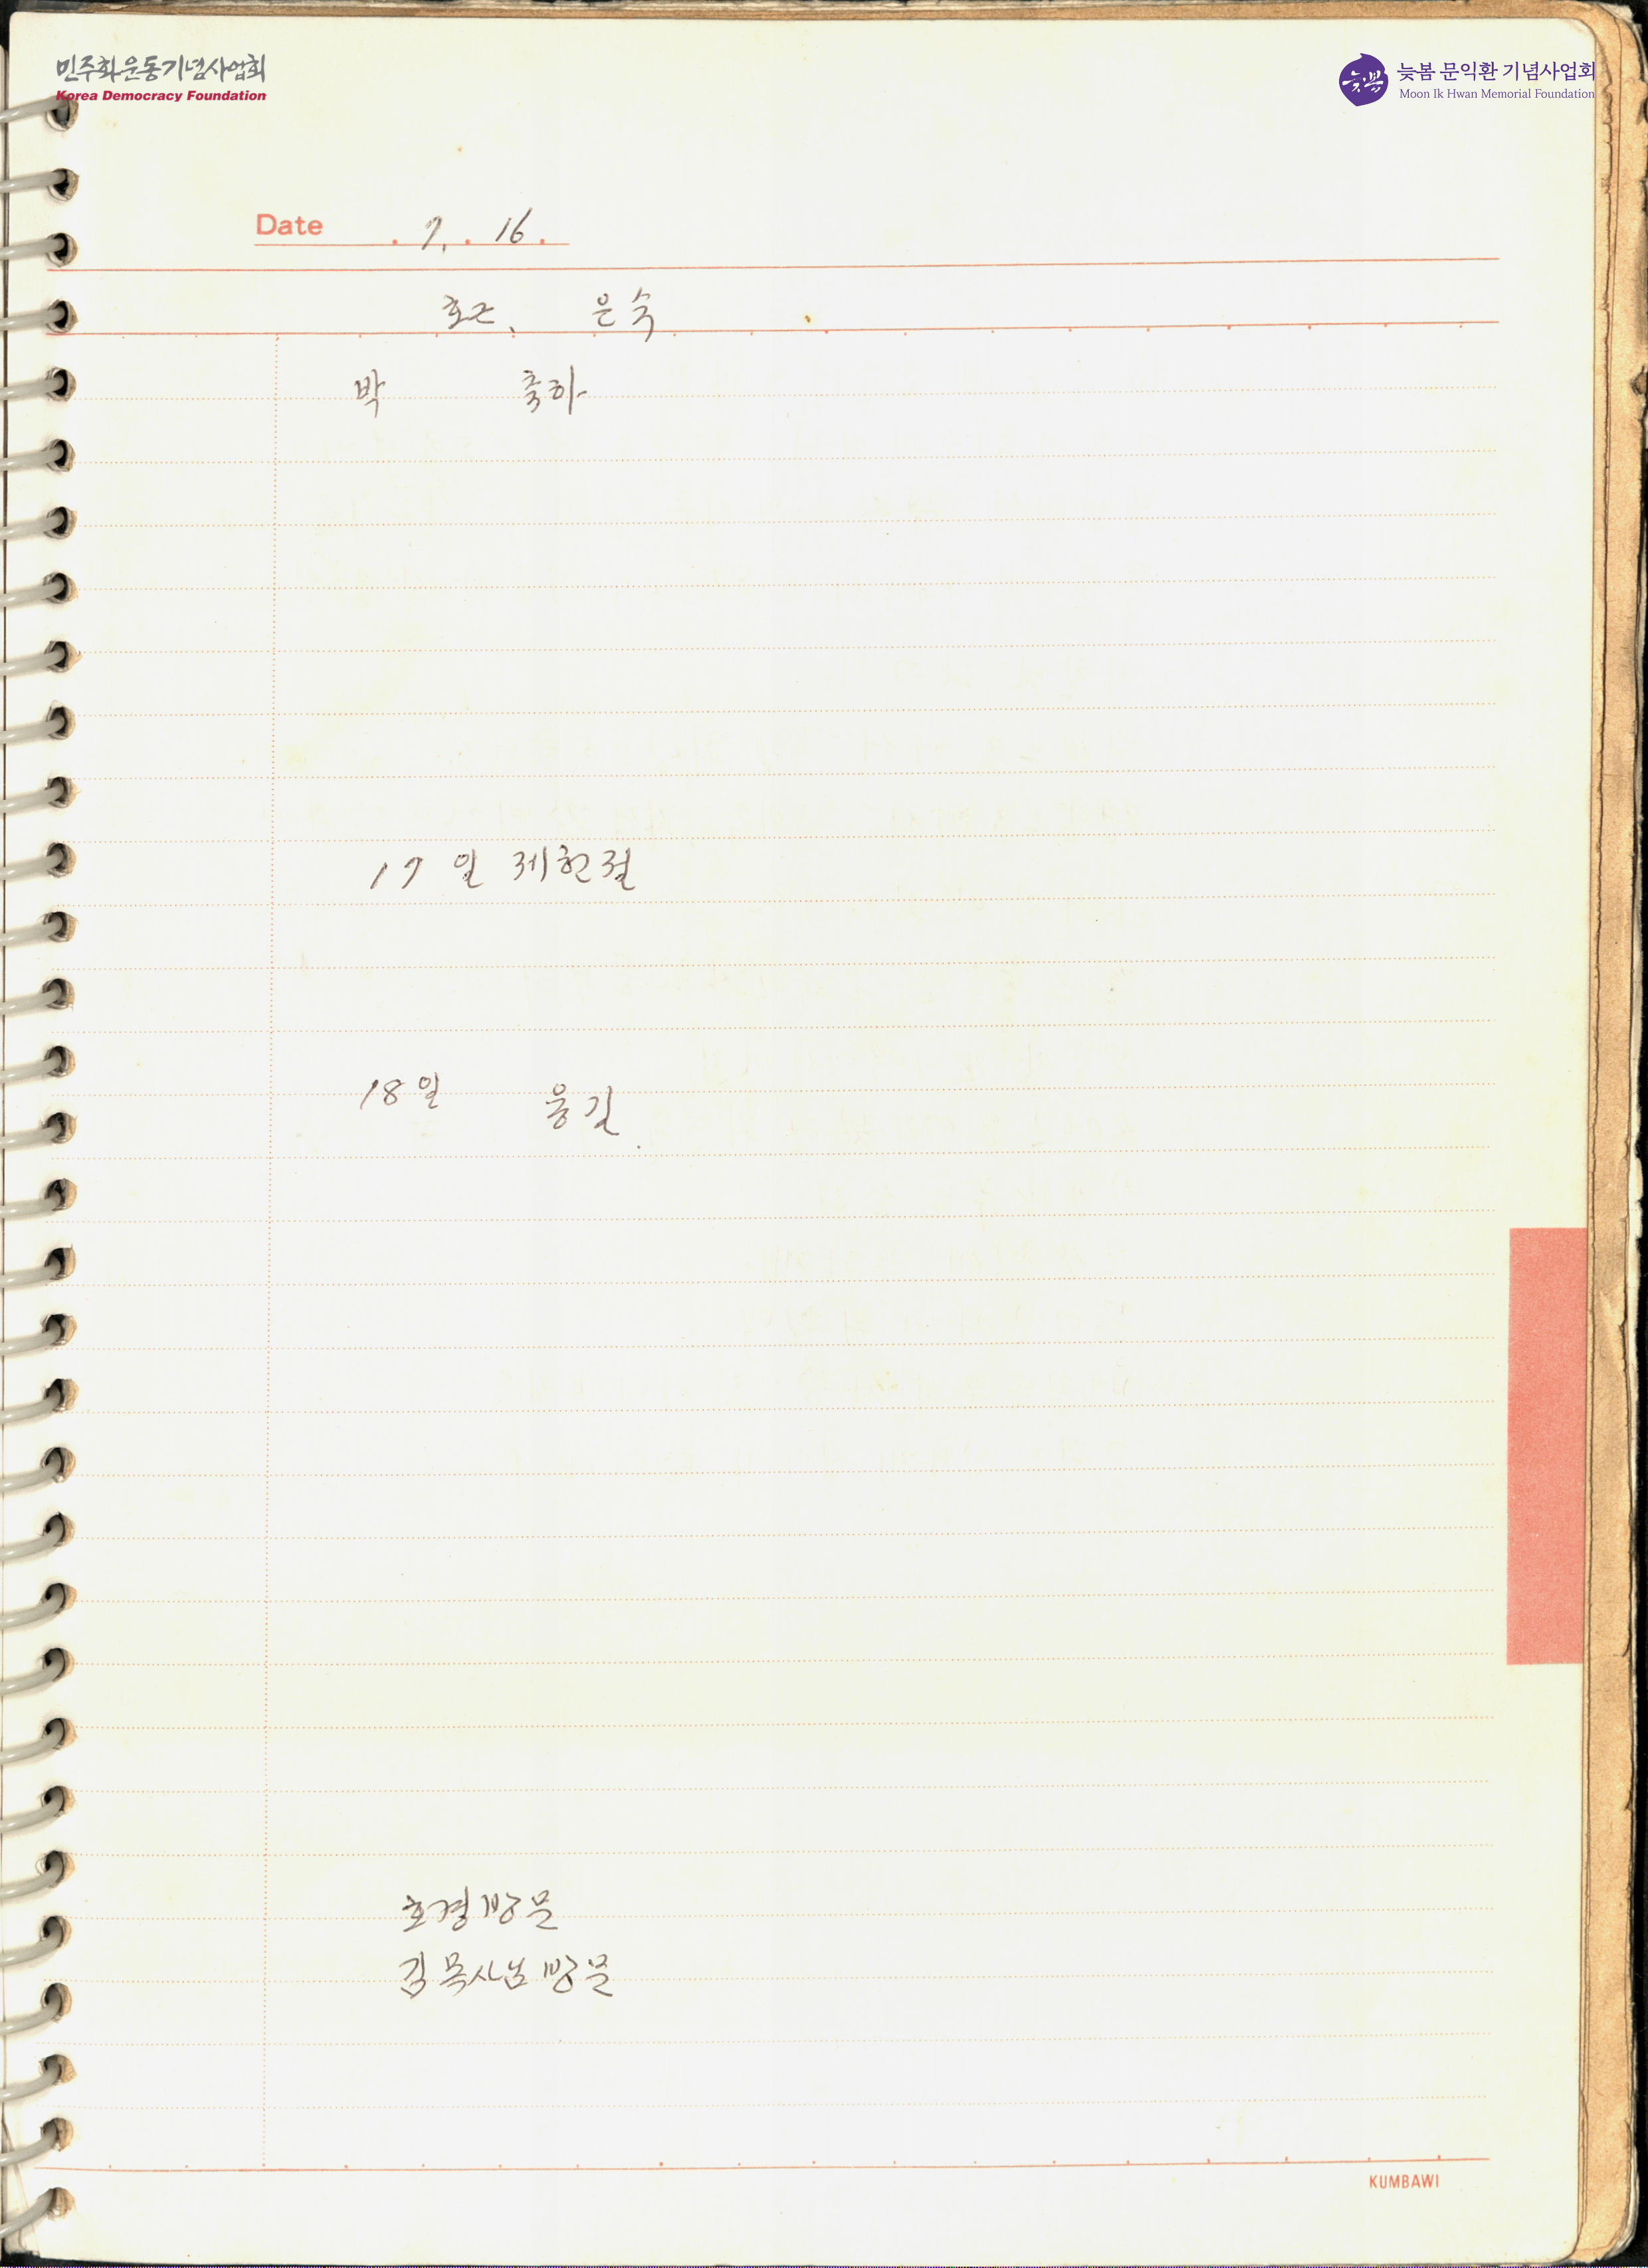 민주화운동기념사업회
Korea Democracy Foundation
늦봄 문익환 기념사업회
Moon Ik Hwan Memorial Foundation
늦봄
Date . 7. . 16 .
호근, 은숙
박 축하
17 일 제헌절
18 일 용길
호경 방문
김 목사님 방문
KUMBAWI